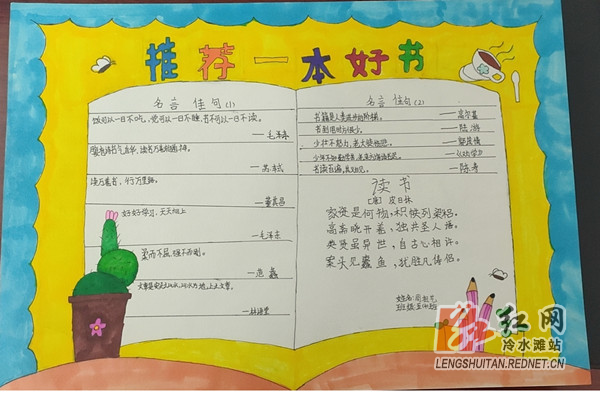 推荐一本好书
名言佳句(1)
饭可以一日不吃，觉可以一日不睡，书不可以一日不读。
—毛泽东
腹有诗书气自华，读书万卷始通神。
—苏轼
读万卷书，行万里路。
—董其昌
好好学习，天天向上
—毛泽东
柔而不屈，强不而刚。
—范蠡
—林语堂
名言佳句(2)
书籍是人类进步的阶梯。
—高尔基
书到用时方恨少。
—陆游
少壮不努力，老大徒伤悲。
少年不知勤学苦，老来方悔读书迟。
—《劝学》
读书
[唐]皮日休
家资是何物，积帙列梁梠。
高斋晓开卷，独共圣人语。
英贤虽异世，自古心相许。
案头见蠹鱼，犹胜凡俦侣。
姓名：
班级：
红网
冷水滩站
LENGSHUITAN.REDNET.CN